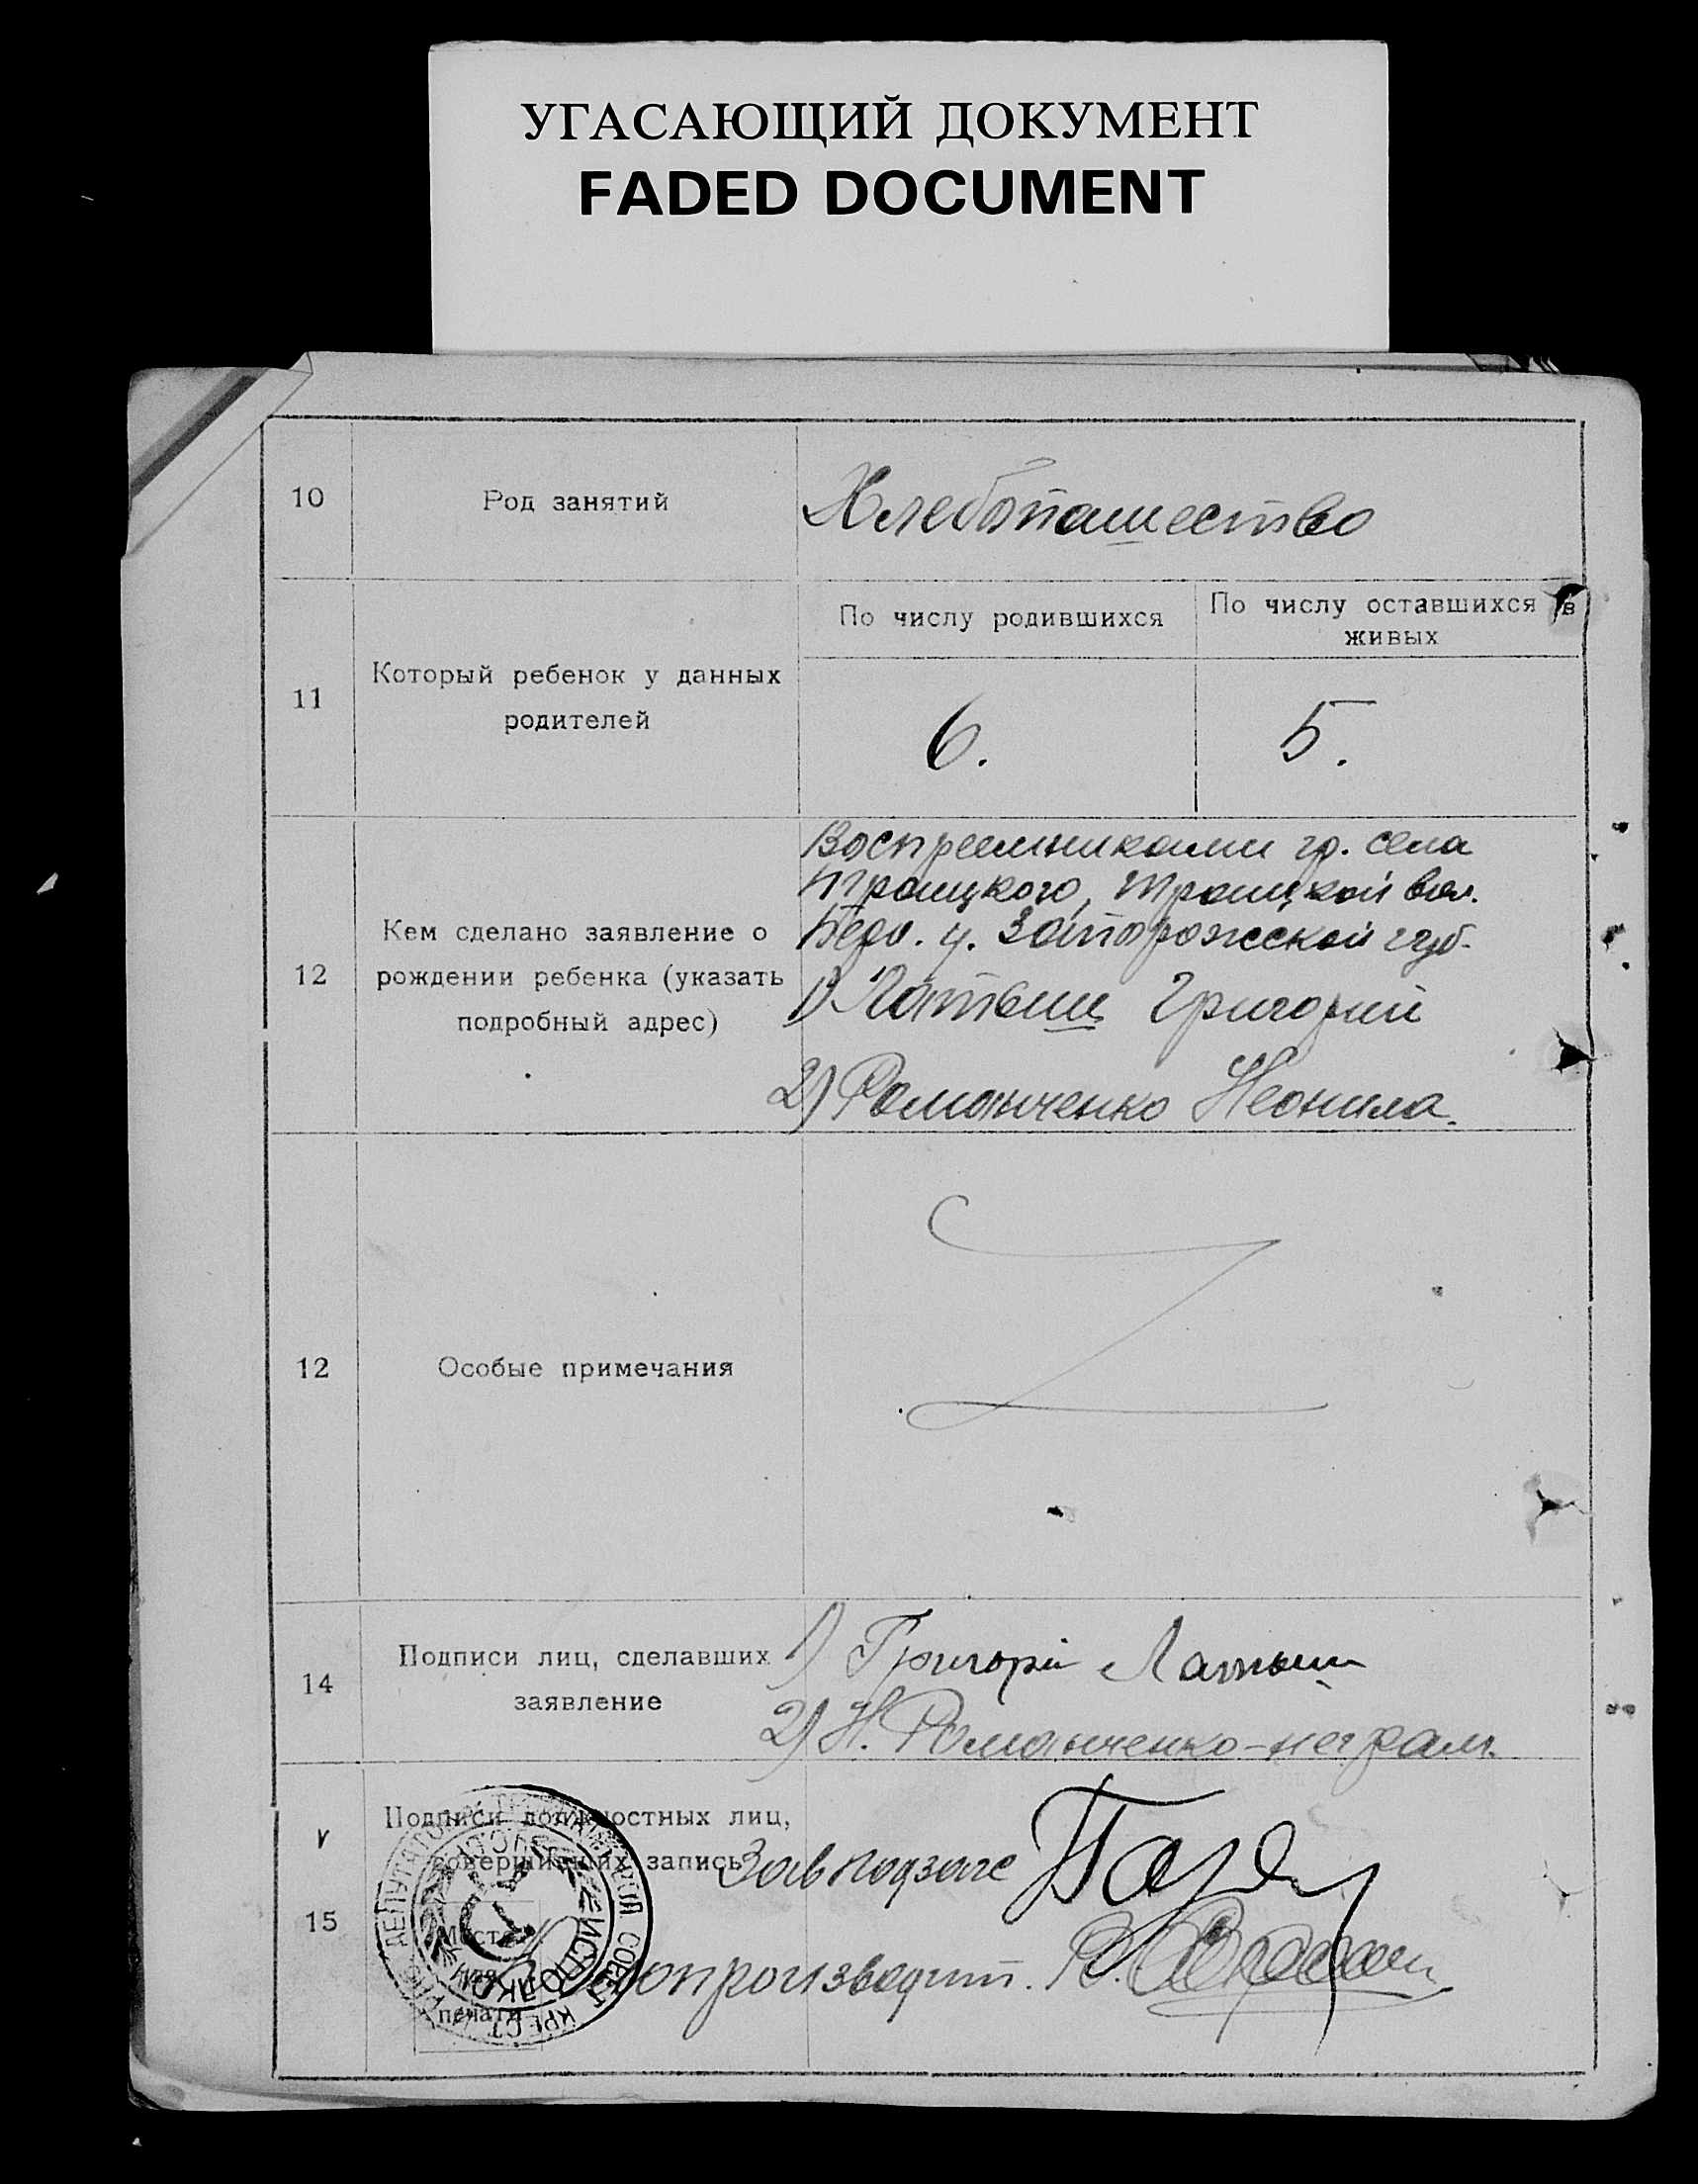 УГАСАЮЩИЙ ДОКУМЕНТ
FADED DOCUMENT
10
Род занятий
Хлебопашество
11
Который ребенок у данных
родителей
По числу родившихся
По числу оставшихся в
живых
6.
5.
12
Кем сделано заявление о
рождении ребенка (указать
подробный адрес)
Восприемниками гр. села
Троицкого, Троицкой вол.
Берд. у. Запорожской губ.
1) Латыш Григорий
2) Романченко Неонила.
12
Особые примечания
14
Подписи лиц, сделавших
заявление
1) Григорій Латыш
2) Н. Романченко-неграм.
15
Подписи должностных лиц,
совершивших запись
Место
печати
Завподзагс
Делопроизводит.
СОВЕТ КРЕСТ
ИСПОЛКОМ